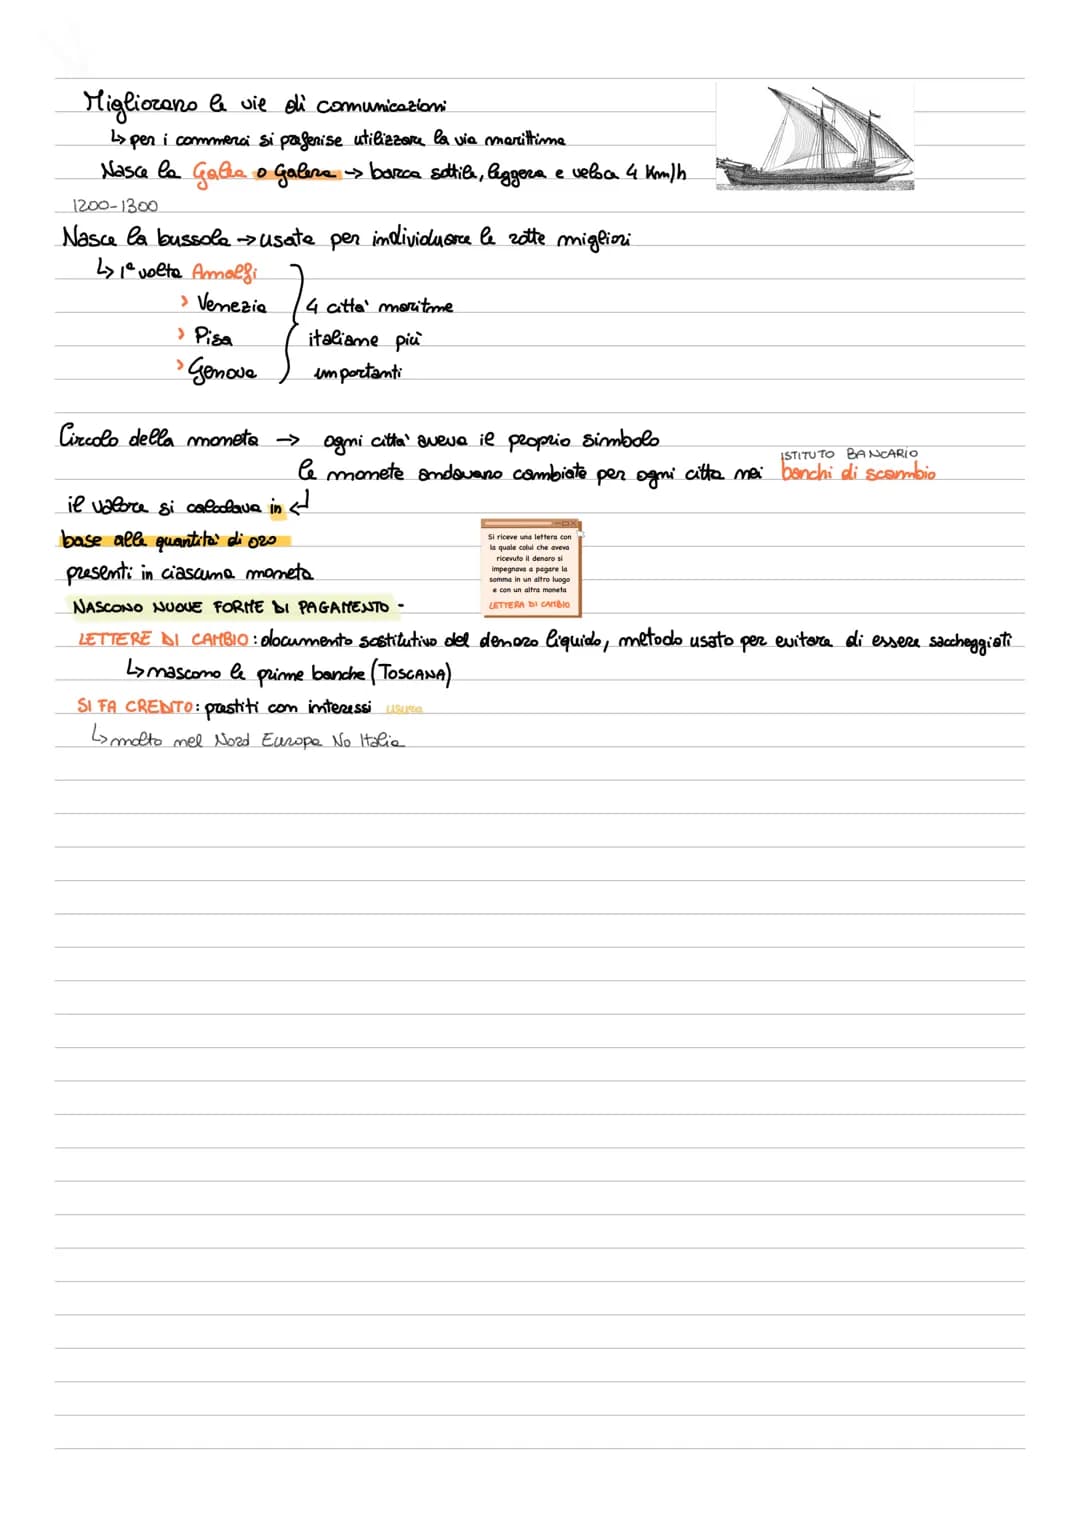 Migliorano le vie di comunicazioni
↳ per i commerci si preferisce utilizzare la via marittima
Nasce la Galea o Galera → barca sottile, leggera e veloce 4 Km/h
1200-1300
Nasce la bussola → usata per individuare le rotte migliori
↳ 1ª volta Amalfi
> Venezia
4 citta' maritime
> Pisa
italiane più
> Genova
importanti
Circolo della moneta → ogni citta' aveva il proprio simbolo
ISTITUTO BANCARIO
le monete andavano cambiate per ogni citta nei banchi di scambio
il valore si calcolava in ↵
base alla quantita' di oro
presenti in ciascuna moneta
Si riceve una lettera con
la quale colui che aveva
ricevuto il denaro si
impegnava a pagare la
somma in un altro luogo
e con un altra moneta
LETTERA DI CAMBIO
NASCONO NUOVE FORME DI PAGAMENTO -
LETTERE DI CAMBIO: documento sostitutivo del denaro liquido, metodo usato per evitare di essere saccheggiati
↳ nascono le prime banche (TOSCANA)
SI FA CREDITO: prestiti con interessi usura
↳ molto nel Nord Europa No Italia